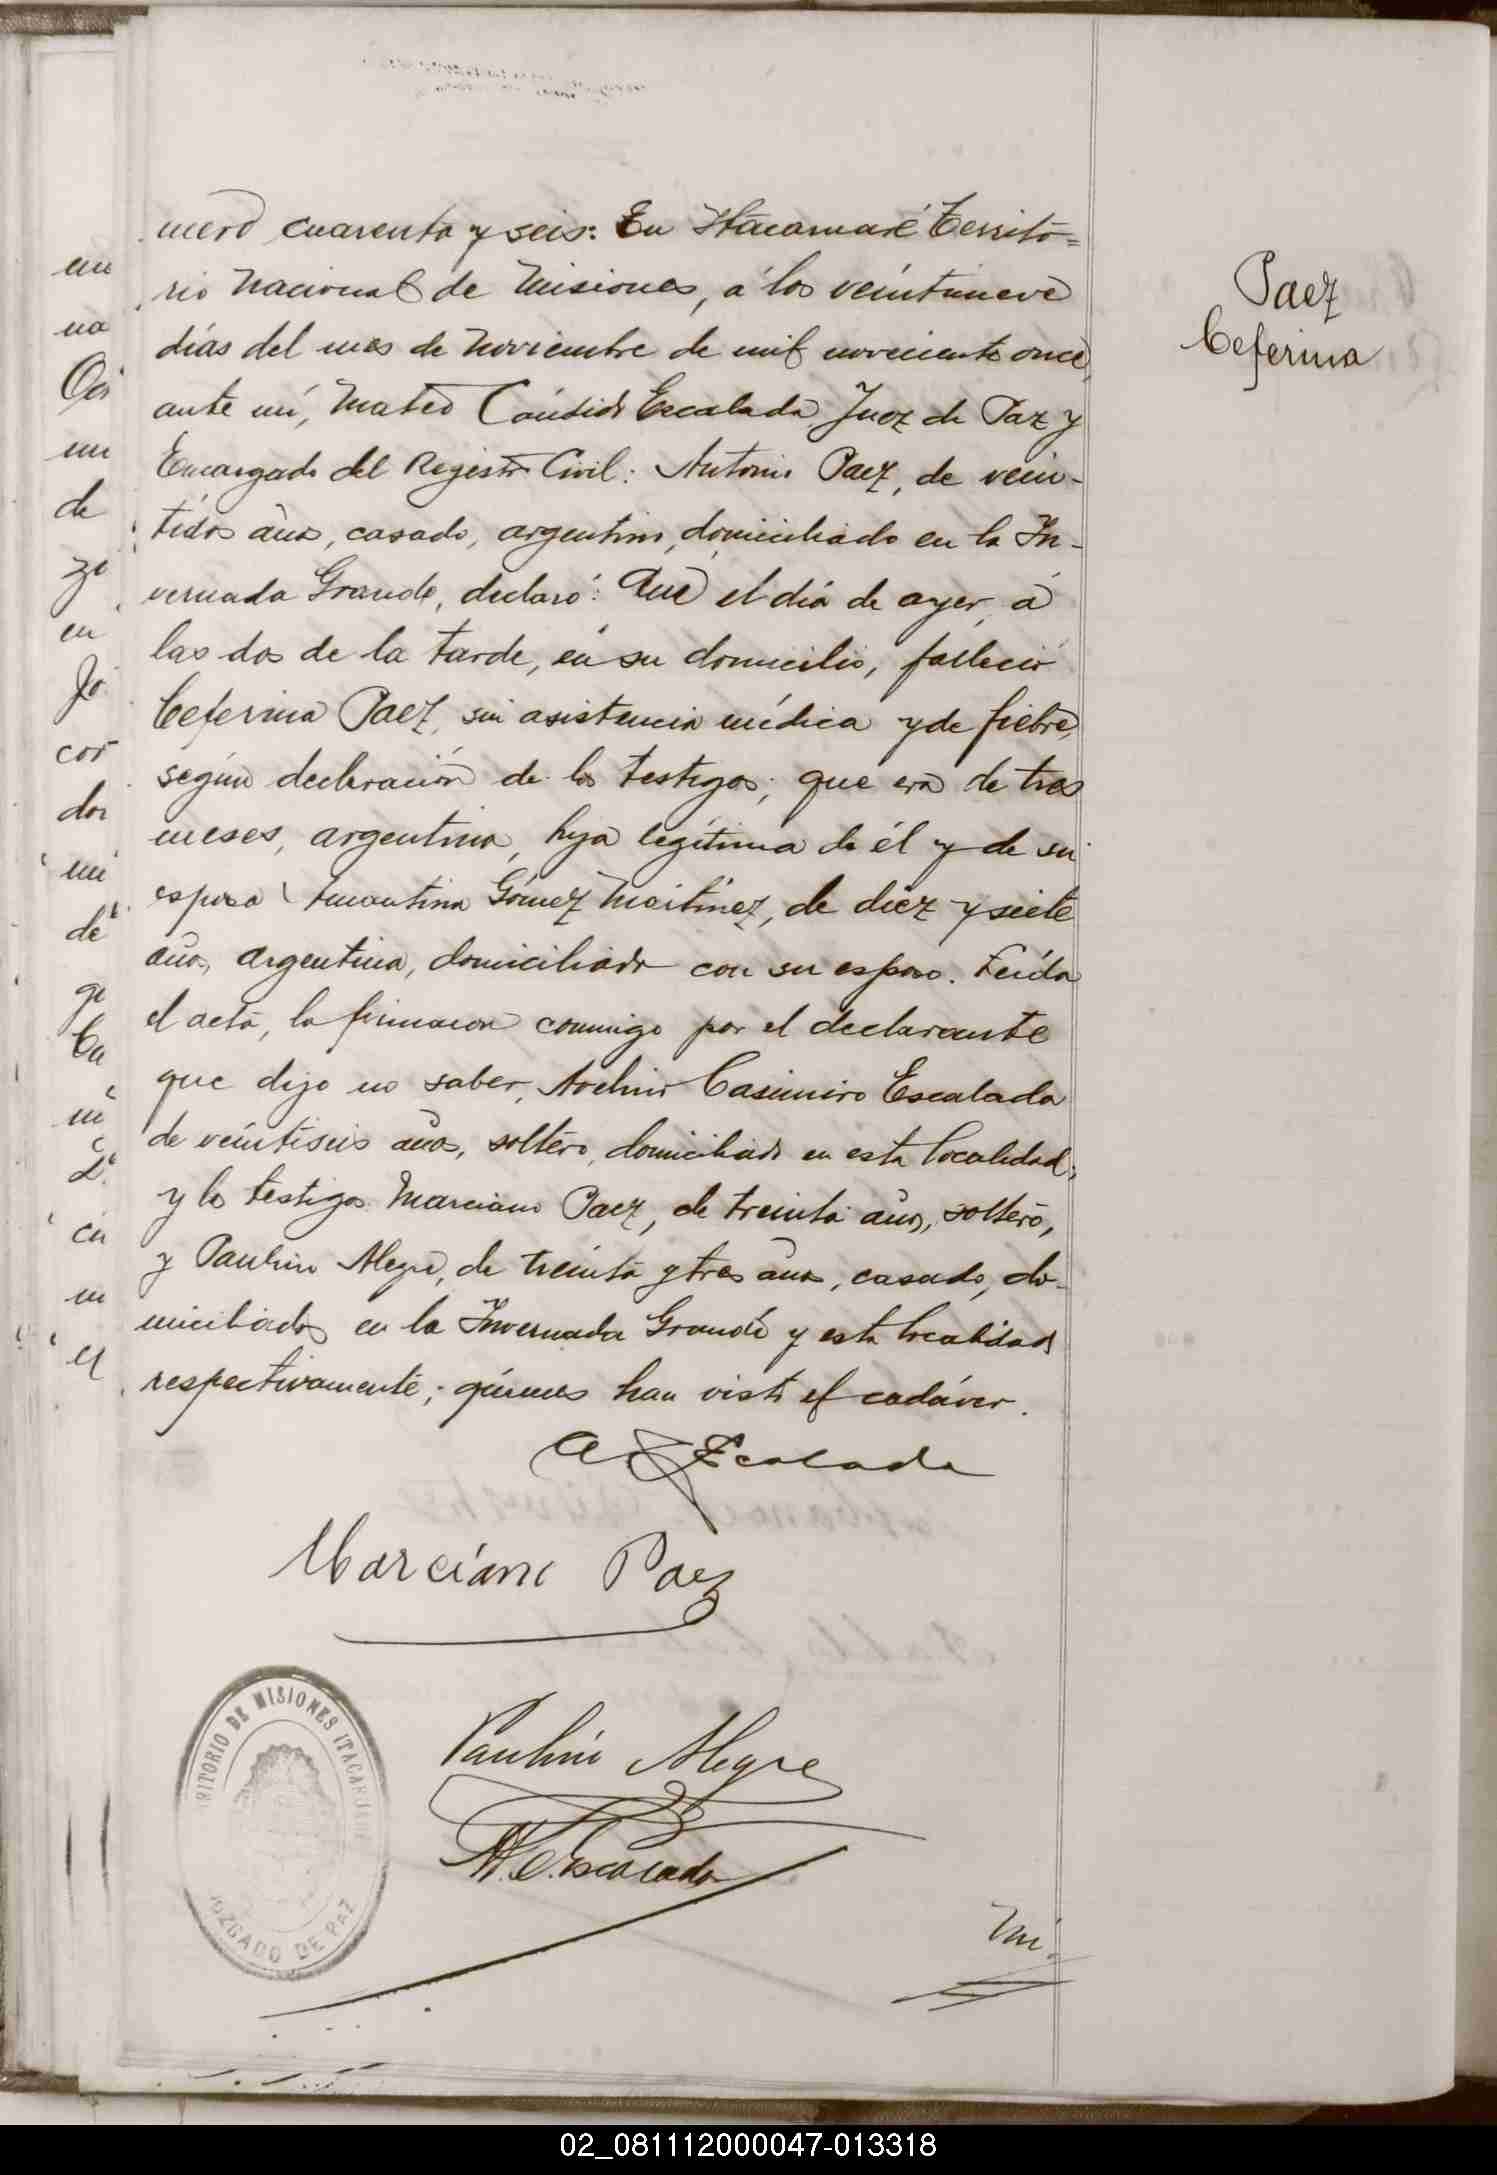 mero cuarenta y seis: En Itacaruaré Territo=
rio Nacional de Misiones, á los veintinueve
días del mes de Noviembre de mil noveciento once,
ante mí, Mateo Cándido Escalada, Juez de Paz y
Encargado del Registro Civil: Antonio Paez, de vein-
tidos años, casado, argentino, domiciliado en la In-
vernada Grande, declaró: Que el día de ayer, á
las dos de la tarde, en su domicilio, falleció
Ceferina Paez, sin asistencia médica y de fiebre,
según declaración de los testigos; que era de tres
meses, argentina, hija legítima de él y de su
esposa Amantina Gómez Martinez, de diez y siete
años, argentina, domiciliada con su esposo. Leída
el acta, la firmaron conmigo por el declarante
que dijo no saber, Avelino Casimiro Escalada
de veintiseis años, soltero, domiciliado en esta localidad;
y los testigos Marciano Paez, de treinta años, soltero,
y Paulino Alegre, de treinta y tres años, casado, do-
miciliados en la Invernada Grande y esta localidad
respectivamente; quienes han visto el cadáver.
A C Escalada
Marciano Paez
Paulino Alegre
M. C. Escalada
Nú.
Paez
Ceferina
RITORIO DE MISIONES ITACARUARE
JUZGADO DE PAZ
02_081112000047-013318